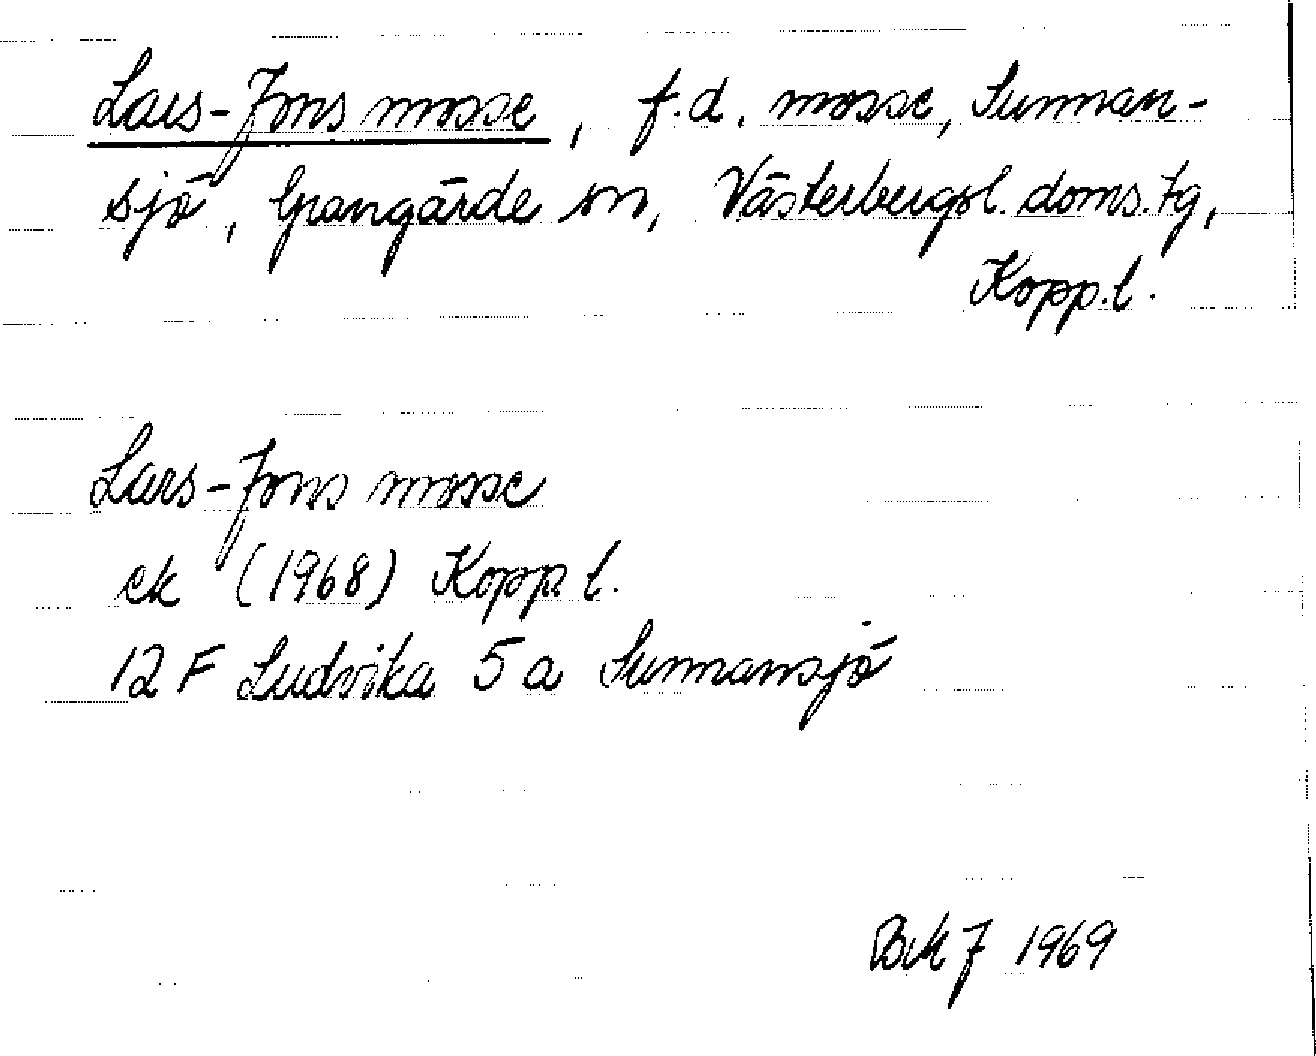 Lars-Jons mosse, f.d. mosse, Sunnan-
sjö, Grangärde sn, Västerbergsl. doms. tg,
Kopp.l.
Lars-Jons mosse
ek (1968) Kopp.l.
12 F Ludvika 5 a Sunnansjö
1969